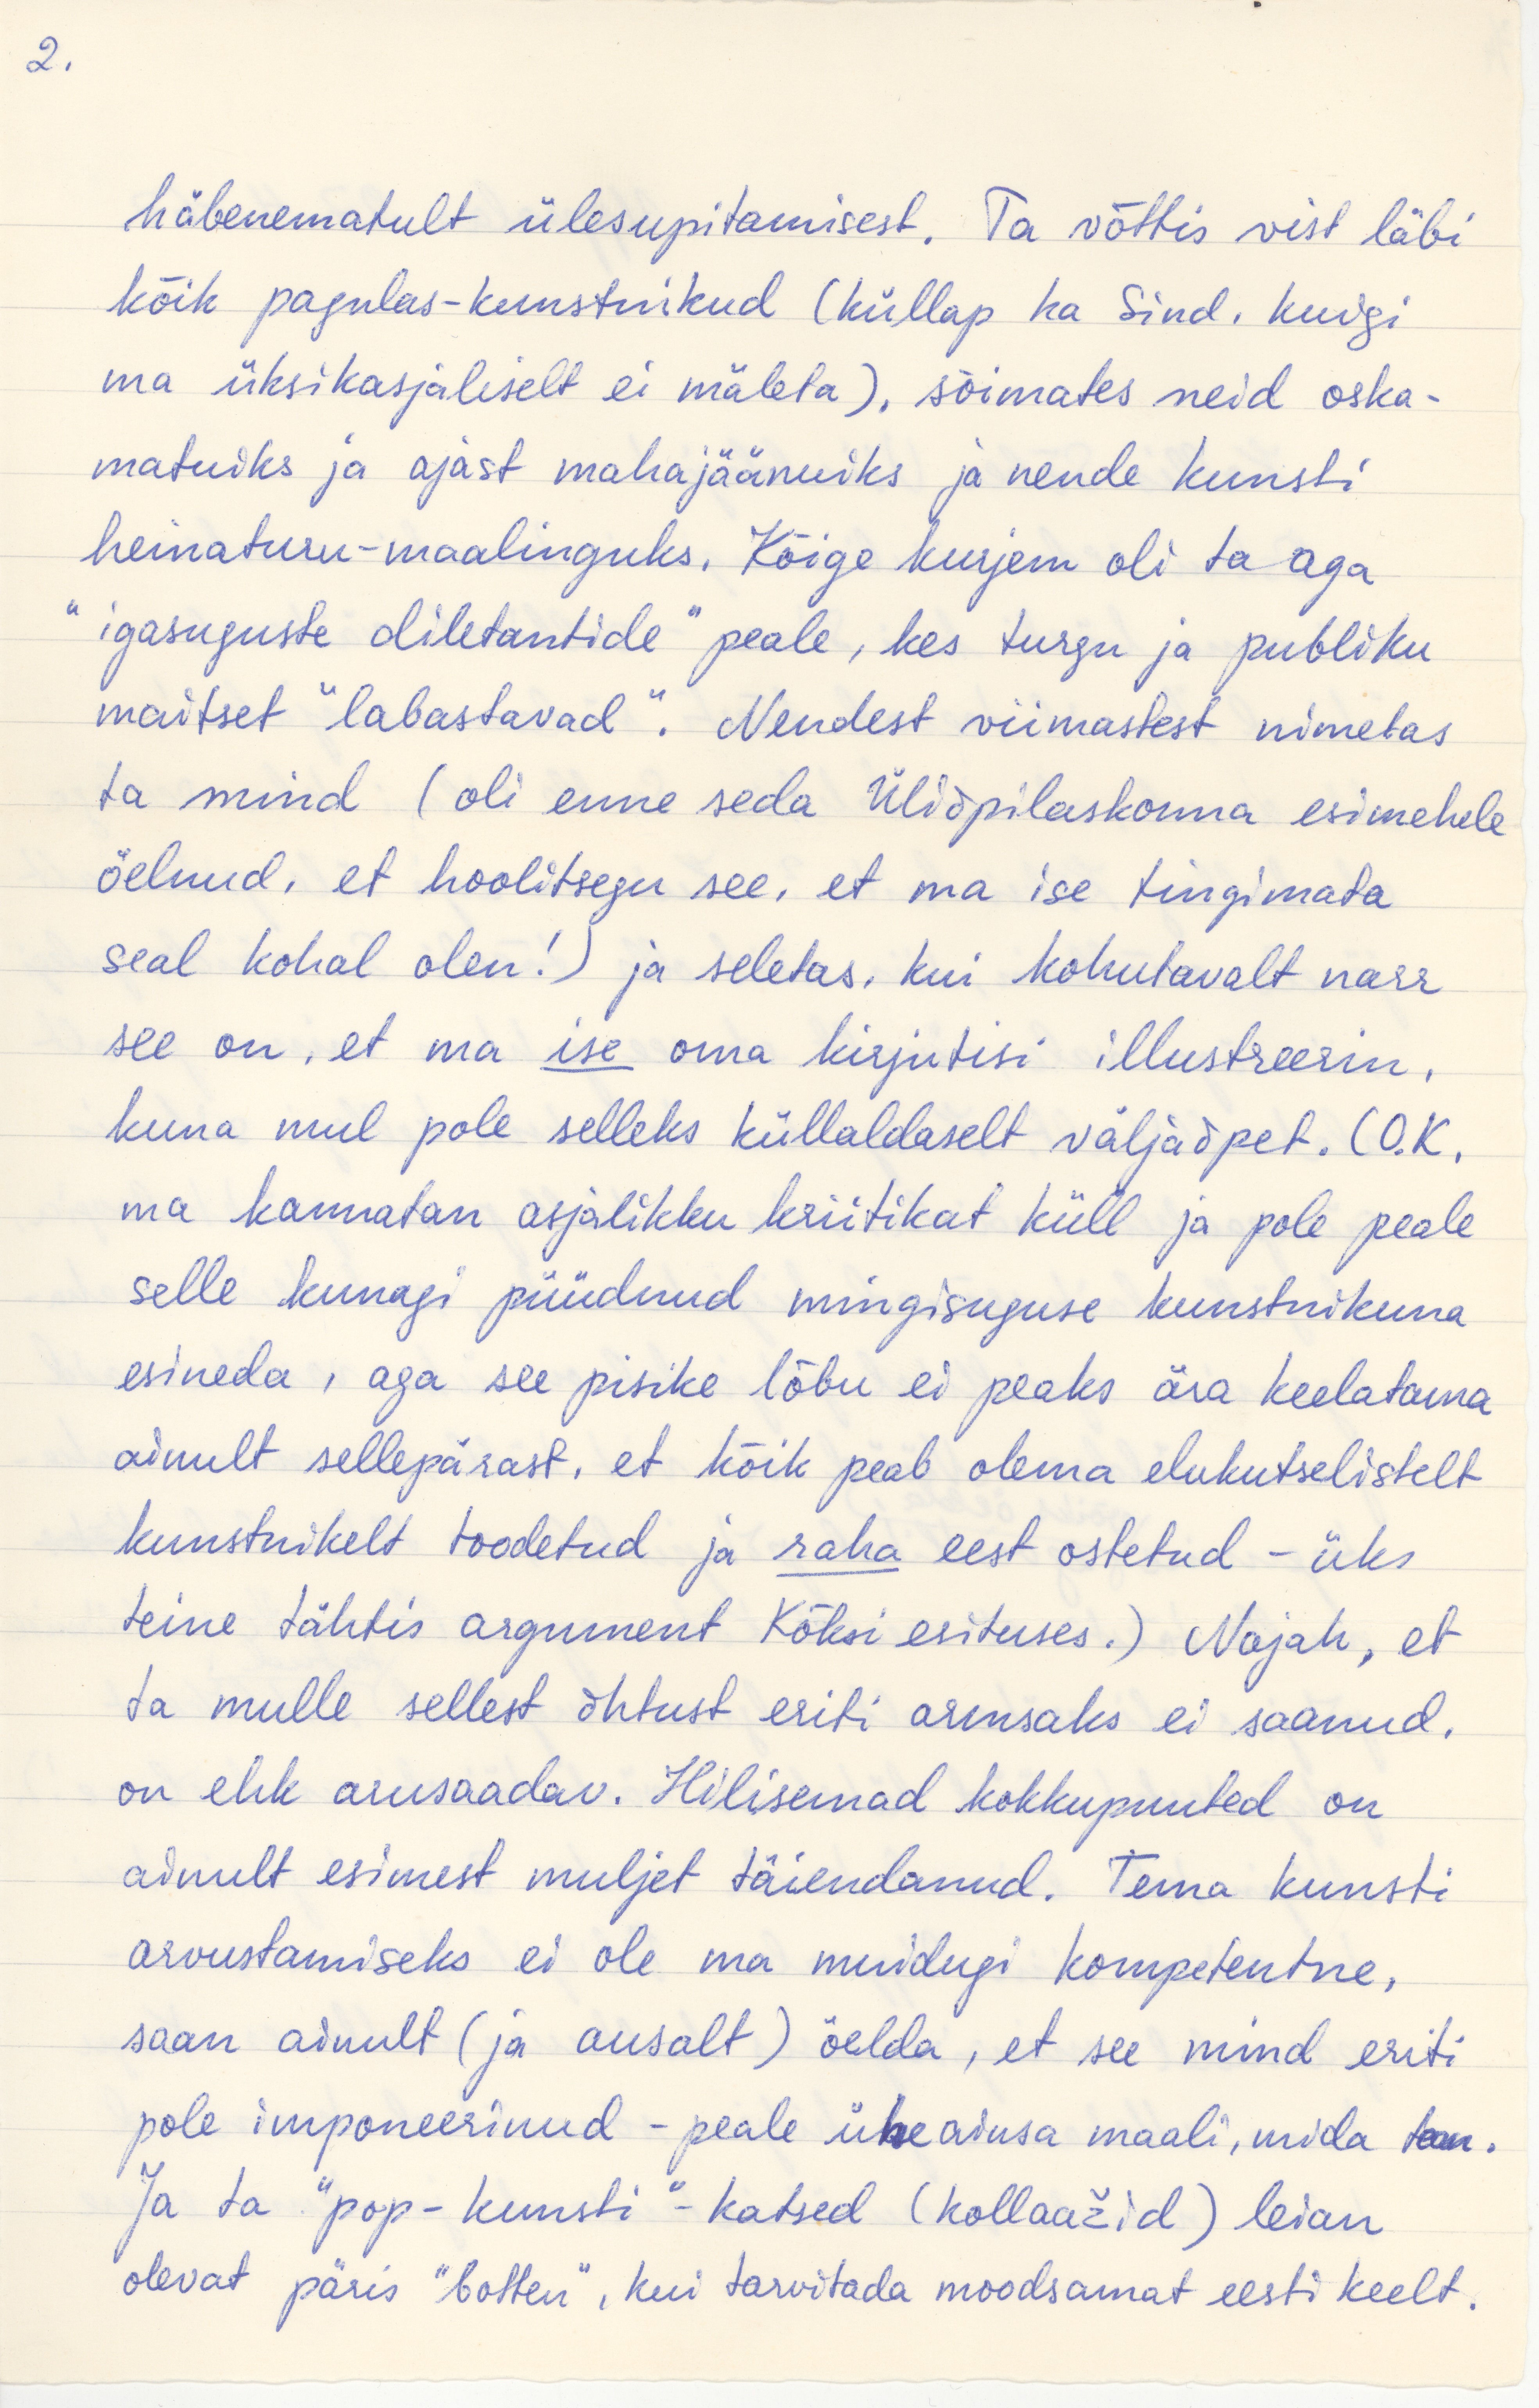 2.
häbenematult ülesupitamisest. Ta võttis vist läbi
kõik pagulas-kunstnikud (küllap ka Sind, kuigi
ma üksikasjaliselt ei mäleta), sõimates neid oska-
matuiks ja ajast mahajäänuiks ja nende kunsti
heinaturu-maalinguks. Kõige kurjem oli ta aga
"igasuguste diletantide" peale, kes turgu ja publiku
maitset "labastavad". Nendest viimastest nimetas
ta mind (oli enne seda Üliõpilaskonna esimehele
öelnud, et hoolitsegu see, et ma ise tingimata
seal kohal olen!) ja seletas, kui kohutavalt narr
see on, et ma ise oma kirjutisi illustreerin,
kuna mul pole selleks küllaldaselt väljaõpet. (O.K.
ma kannatan asjalikku kriitikat küll ja pole peale
selle kunagi püüdnud mingisuguse kunstnikuna
esineda, aga see pisike lõbu ei peaks ära keelatama
ainult sellepärast, et kõik peab olema elukutselistelt
kunstnikelt toodetud ja raha eest ostetud - üks
teine tähtis argument Kõksi esituses.) Nojah, et
ta mulle sellest õhtust eriti armsaks ei saanud,
on ehk arusaadav. Hilisemad kokkupuuted on
ainult esimest muljet täiendanud. Tema kunsti
arvustamiseks ei ole ma muidugi kompetentne,
saan ainult (ja ausalt) öelda, et see mind eriti
pole imponeerinud - peale üheainsa maali, mida tean.
Ja ta "pop-kunsti"-katsed (kollaažid) leian
olevat päris "botten", kui tarvitada moodsamat eesti keelt.